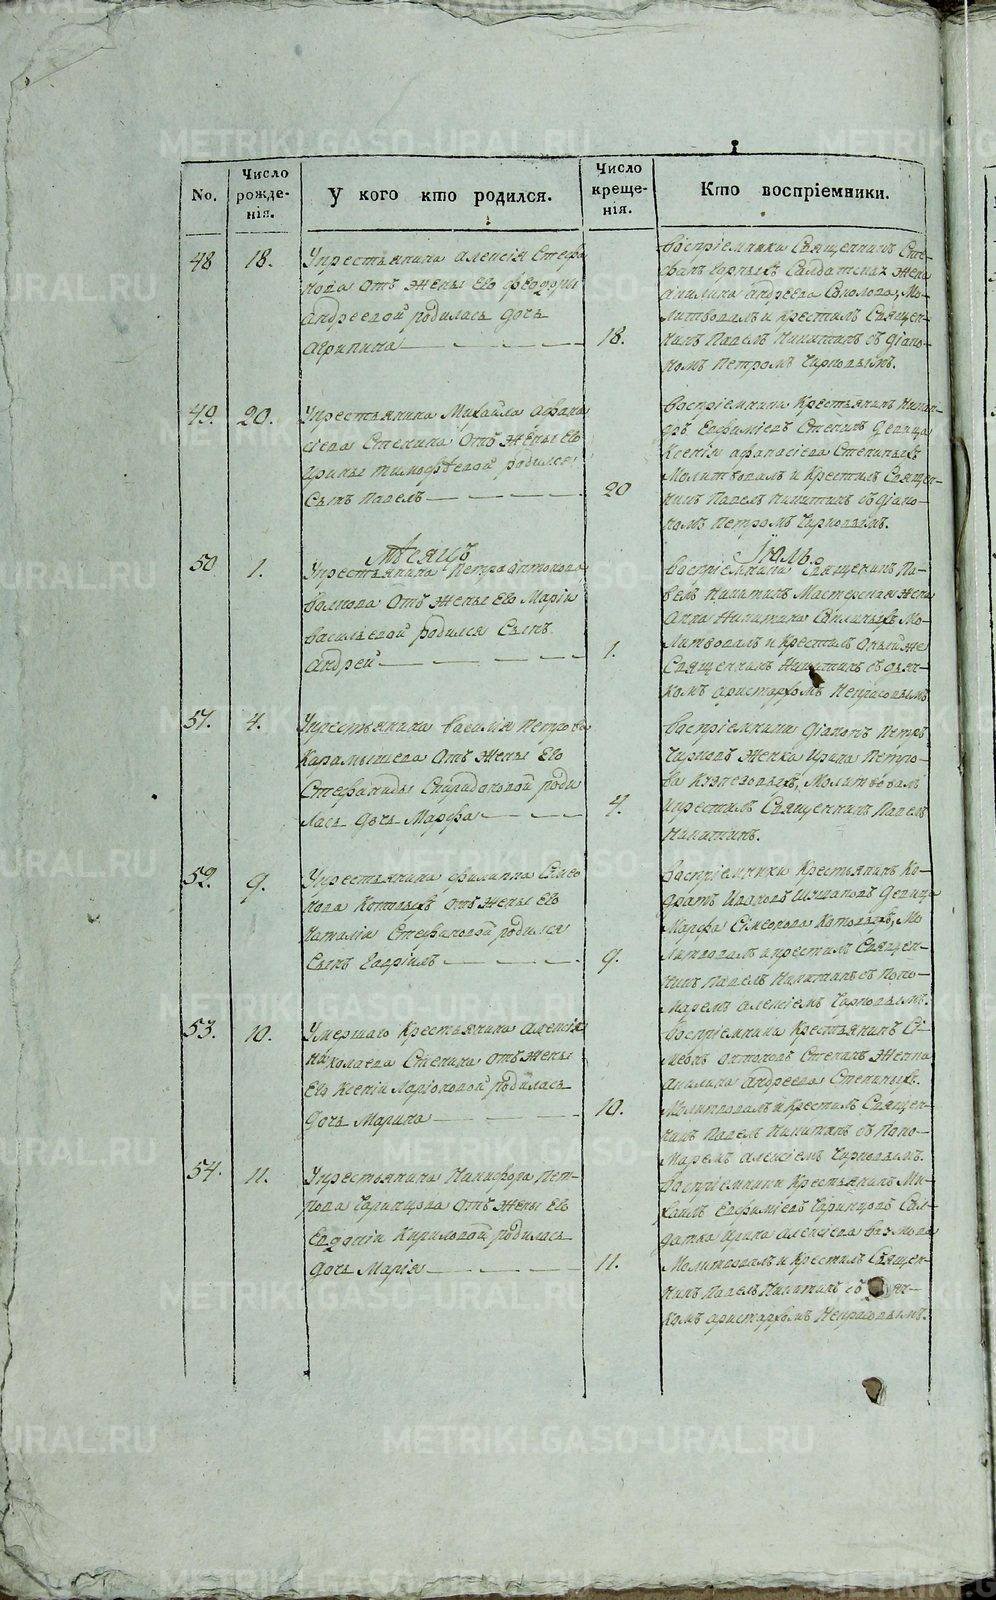 No.
Число рожденія.
У кого кто родился.
Число крещенія.
Кто воспріемники.
48
18.
Укрестьянина Алексія Стефа
нова Отъ жены Его Феодоры
Андреевой родилась дочь
Агрипина
18.
Воспріемники Священникъ Сте-
фанъ Салдатская жена
Акилина Андреева Соколова, Мо-
литвовалъ и крестилъ Священ-
никъ Павелъ Никитинъ съ діако-
номъ Петромъ
49.
20.
Укрестьянина Михайла Афана
сіева Степина Отъ жены Его
Ирины Тимофѣевой родился
Сынъ Павелъ
20
Воспріемники Крестьянинъ
Евфиміевъ Степинъ Девица
Ксенія Афанасіева Степиныхъ
Молитвовалъ и Крестилъ Священ-
никъ Павелъ Никитинъ съ діако-
номъ Петромъ
мѣсяцъ
Іюль.
50
1.
Укрестьянина Петра Антонова
Волкова Отъ жены Его Маріи
Васильевой родился Сынъ
Андрей
1.
Воспріемники Священникъ Па-
велъ Никитинъ Мастерская жена
Анна Никитина Мо-
литвовалъ и крестилъ Оныйже
Священникъ Никитинъ съ дьяч-
комъ Аристархомъ Некрасовымъ
51.
4.
Укрестьянина Василія Петрова
Карамышева Отъ жены Его
Стефаниды Спиридоновой роди
лась дочь Марфа
4.
Воспріемники Діаконъ Петръ
женка Ирина Петро-
ва Кузнецовыхъ, Молитвовалъ
икрестилъ Священникъ Павелъ
Никитинъ.
52.
9.
Укрестьянина Филиппа Симео
нова Котовыхъ отъ жены Его
Наталіи Стефановой родился
Сынъ Гавріилъ
9.
Воспріемники Крестьянинъ Ко-
дратъ Ивановъ Девица
Марфа Симеонова Котовыхъ, Мо
литвовалъ икрестилъ Священ-
никъ Павелъ Никитинъ съ Поно-
маремъ Алексіемъ
53.
10.
Умершаго Крестьянина Алексія
Николаева Степина отъ жены
Его Ксеніи Ларіоновой родилась
Дочь Марина
10.
Воспріемники Крестьянинъ Си-
меонъ Антоновъ Степинъ женка
Акилина Андреева Степиныхъ.
Молитвовалъ и Крестилъ Священ-
никъ Павелъ Никитинъ съ Поно-
маремъ Алексіемъ
54.
11.
Укрестьянина Никифора Пет-
рова Отъ жены Его
Евдокіи Кириловой родилась
дочь Марія
11.
Воспріемники Крестьянинъ Ми-
хаилъ Евфиміевъ Сал-
датка Ирина Алексіева
Молитвовалъ и Крестилъ Священ-
никъ Павелъ Никитинъ съ
комъ Аристархомъ Некрасовымъ.
METRIKI.GASO-URAL.RU